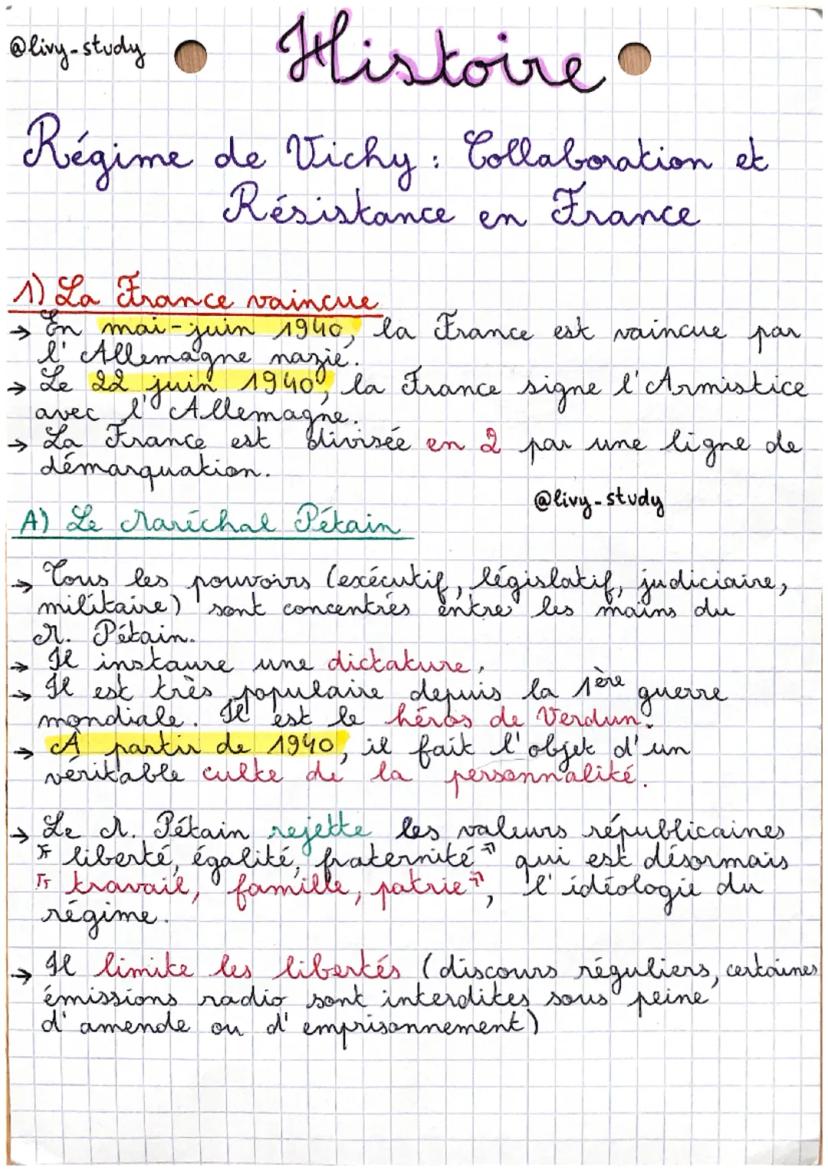 @livy-study
Histoire
Régime de Vichy : Collaboration et
Résistance en France
1) La France vaincue
→ En mai-juin 1940, la France est vaincue par
l'Allemagne nazie.
→ Le 22 juin 1940, la France signe l'Armistice
avec l'Allemagne.
→ La France est divisée en 2 par une ligne de
démarquation.
@livy-study
A) Le Maréchal Pétain
→ Tous les pouvoirs (exécutif, législatif, judiciaire,
militaire) sont concentrés entre les mains du
M. Pétain.
→ Il instaure une dictature,
→ Il est très populaire depuis la 1ère guerre
mondiale. Il est le héros de Verdun.
→ A partir de 1940, il fait l'objet d'un
véritable culte de la personnalité.
→ Le M. Pétain rejette les valeurs républicaines
"liberté, égalité, fraternité" qui est désormais
"travail, famille, patrie", l'idéologie du
régime.
→ Il limite les libertés (discours réguliers, certaines
émissions radio sont interdites sous peine
d'amende ou d'emprisonnement)